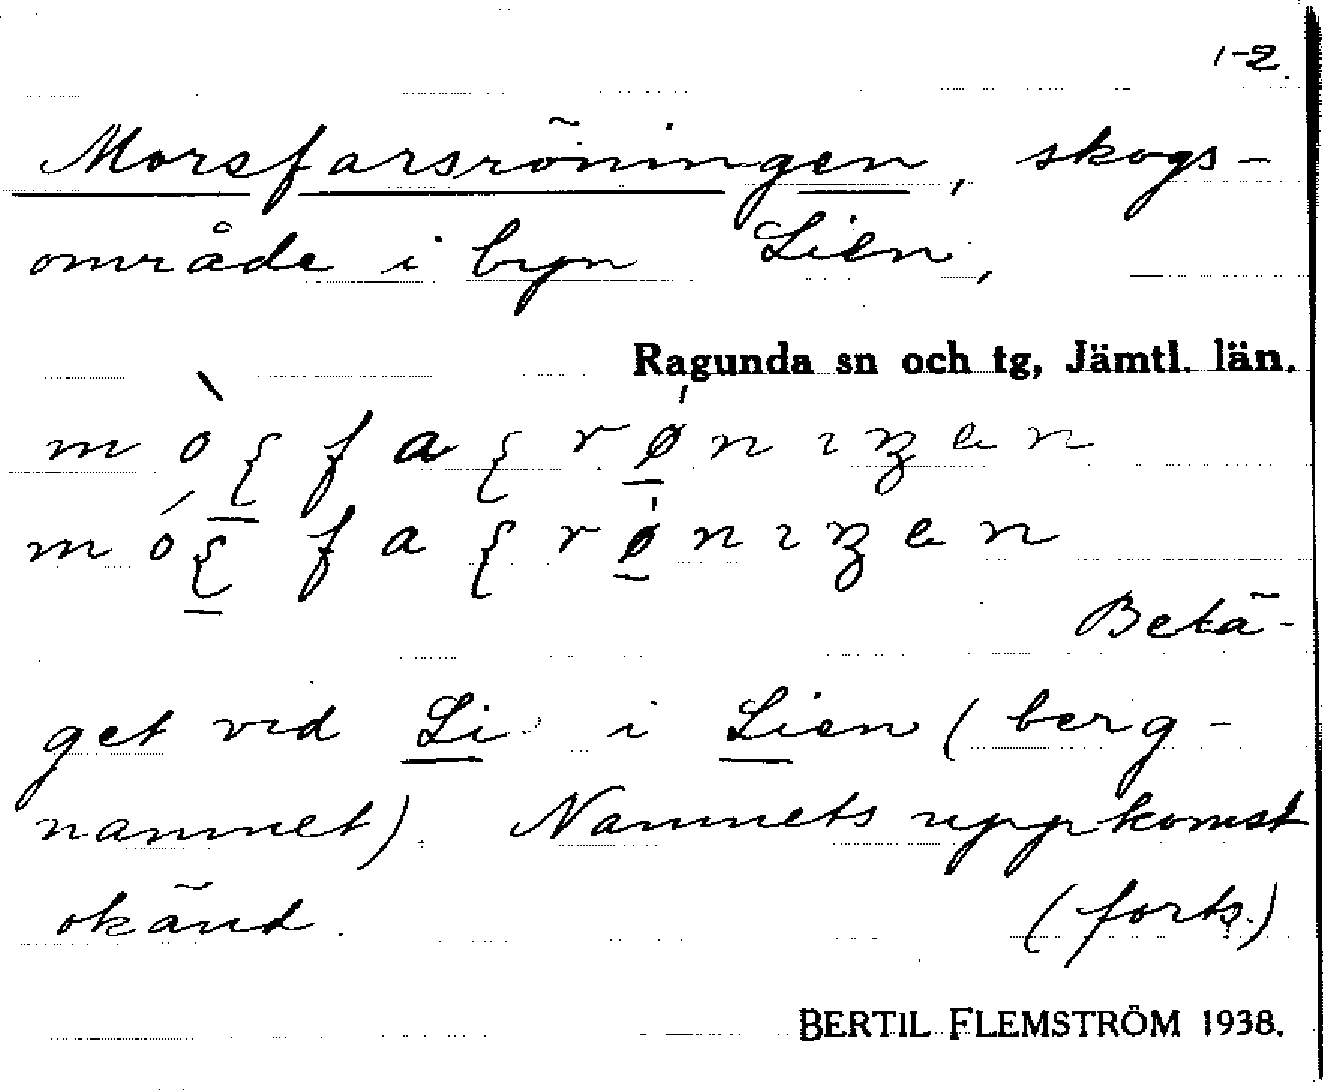 1-2.
Morsfarsröningen, skogs-
område i byn Lien,
Ragunda sn och tg, Jämtl. län.
Betä-
get vid Li i Lien (berg-
namnet). Namnets uppkomst
okänd. (forts.)
BERTIL FLEMSTRÖM 1938.